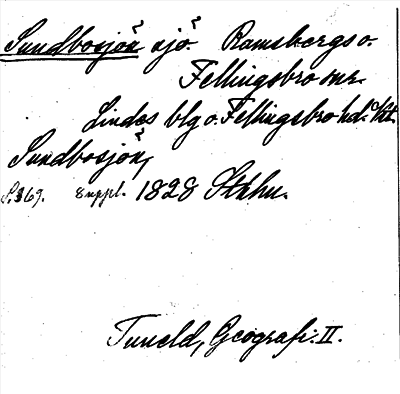 Sundbosjön sjö. Ramsbergs o.
Fellingsbro snr.
Lindes blg o. Fellingsbro hd.
Sundbosjön,
S. 369. suppl. 1828 Sthlm.
Tuneld, Geografi. II.